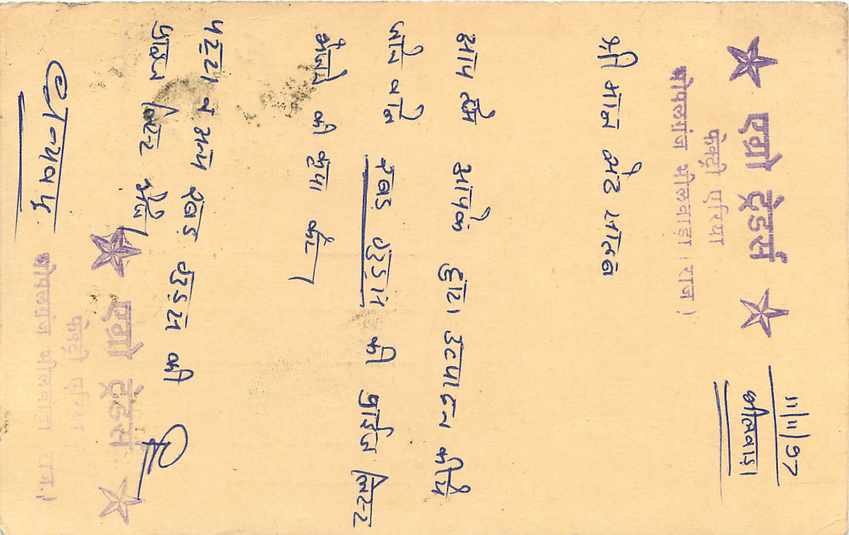 ★ एग्रो ट्रेडर्स ★
फेक्ट्री एरिया
भोपलगंज भीलवाडा (राज.)
11/11/97
भीलवाडा
श्री मान सेठ साहब
आप हमें आपके द्वारा उत्पादन कीये
जाने वाले रबड़ गुड्स की प्राईज लिस्ट
भेजने की कृपा करें
पट्टा व अन्य रबड गुड्स की
प्राईज लिस्ट भेजें
धन्यवाद
★ एग्रो ट्रेडर्स ★
फेक्ट्री एरिया
भोपलगंज भीलवाडा (राज.)